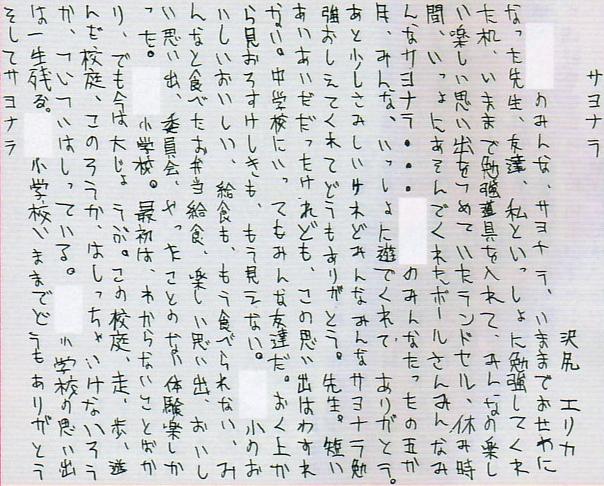 サヨナラ
沢尻 エリカ
のみんな、サヨナラ、いままでおせわに
なった先生、友達、私といっしょに勉強してくれ
た机、いままで勉強道具を入れて、みんなの楽し
い楽しい思い出をつめていたランドセル、休み時
間、いっしょにあそんでくれたボールさんみんなみ
んなサヨナラ・・・ のみんなたったの五か
月、みんな、いっしょに遊でくれて、ありがとう。
あと少しさみしいけれどみんなみんなサヨナラ勉
強おしえてくれてどうもありがとう。先生。短い
あいあいだだったけれども、この思い出はわすれ
ない。中学校にいってもみんな友達だ。おく上か
ら見おろすけしきも、もう見えない。 小のお
いしいおいしい、給食も、もう食べられない、み
んなと食べたお弁当給食、楽しい思い出、おいし
い思い出、委員会、やったことのない体験楽しか
った。 小学校。最初は、わからないことばか
り、でも今は大じょうぶ。この校庭、走、歩、遊
んだ校庭、このろうか、はしっちゃいけないろう
か、ついついはしっている。 小学校の思い出
は一生残る。 小学校いままでどうもありがとう
そしてサヨナラ